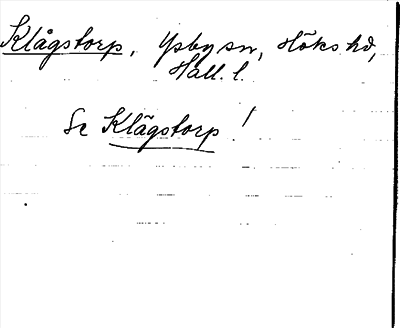 Klågstorp, Ysby sn, Höks hd,
Hall. l.
Se Klägstorp!